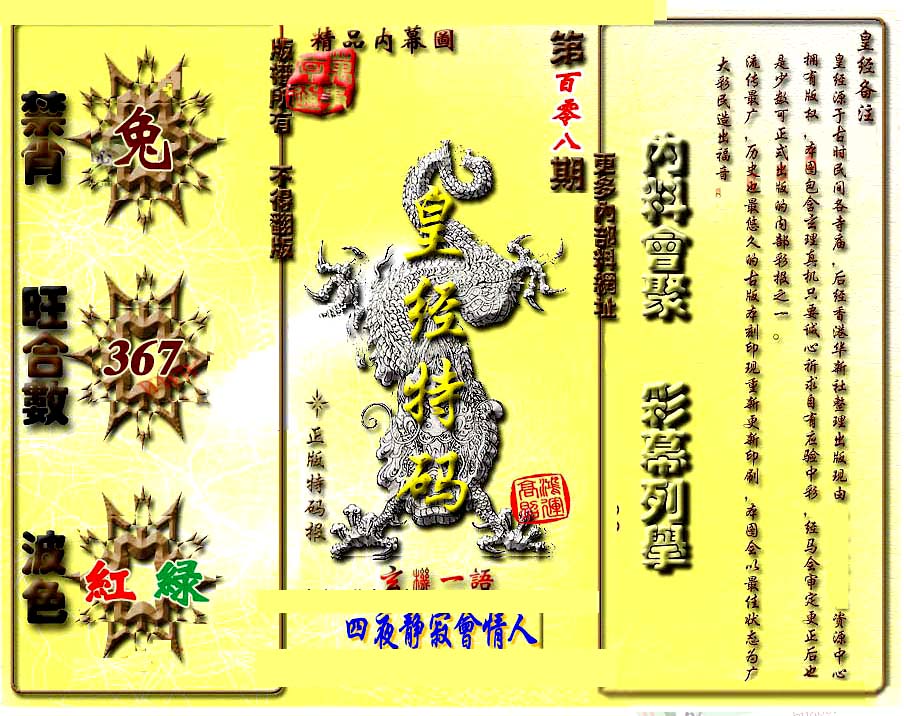 精品内幕圖
版權所有 不得翻版
第百零八期
更多內部料網址
禁肖
兔
旺合數
367
波色
紅 綠
皇经特码
正版特码报
鴻運高照
玄機一語
四夜静寂會情人
内料會聚
彩幕列舉
皇经备注
皇经源于古时民间各寺庙,后经香港华新社整理出版现由 资源中心
拥有版权,本图包含玄理真机只要诚心祈求自有应验中彩,经马会审定更正后也
是少数可正式出版的内部彩报之一。
流传最广,历史也最悠久的古版本刻印现重新更新印刷,本图会以最佳状态为广
大彩民造出福音